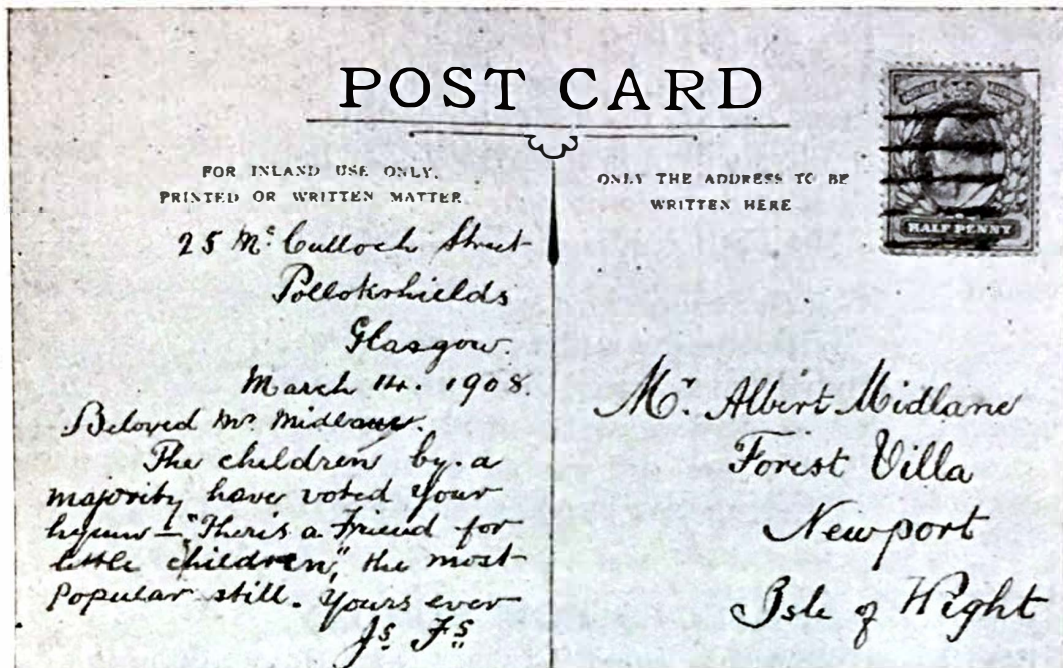 POST CARD
FOR INLAND USE ONLY.
PRINTED OR WRITTEN MATTER
25 Mc Culloch Street
Pollokshields
Glasgow.
March 14. 1908.
Beloved Mr. Midlane.
The children by a
majority have voted your
hymn — "There's a Friend for
little children," the most
popular still. Yours ever
Js. Fs.
ONLY THE ADDRESS TO BE
WRITTEN HERE
HALF PENNY
Mr. Albert Midlane
Forest Villa
Newport
Isle of Wight